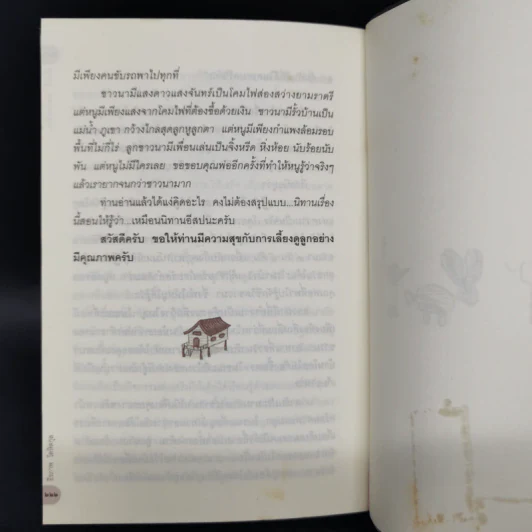 มีเพียงคนขับรถพาไปทุกที่
ชาวนามีแสงดาวแสงจันทร์เป็นโคมไฟส่องสว่างยามราตรี
แต่หนูมีเพียงแสงจากโคมไฟที่ต้องซื้อด้วยเงิน ชาวนามีรั้วบ้านเป็น
แม่น้ำ ภูเขา กว้างไกลสุดลูกหูลูกตา แต่หนูมีเพียงกำแพงล้อมรอบ
พื้นที่ไม่กี่ไร่ ลูกชาวนามีเพื่อนเล่นเป็นจิ้งหรีด หิ่งห้อย นับร้อยนับ
พัน แต่หนูไม่มีใครเลย ขอขอบคุณพ่ออีกครั้งที่ทำให้หนูรู้ว่าจริงๆ
แล้วเรายากจนกว่าชาวนามาก
ท่านอ่านแล้วได้แง่คิดอะไร คงไม่ต้องสรุปแบบ...นิทานเรื่อง
นี้สอนให้รู้ว่า เหมือนนิทานอีสปนะครับ
สวัสดีครับ ขอให้ท่านมีความสุขกับการเลี้ยงดูลูกอย่าง
มีคุณภาพครับ
๒๒๒